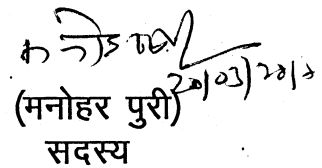 20/03/2018
(मनोहर पुरी)
सदस्य